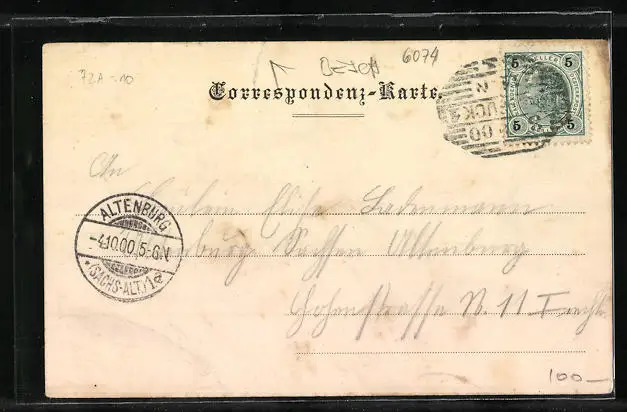 72A - 10
6074
Correspondenz-Karte.
5 HELLER 5
5 5
2
UCK 1
00
An
Fräulein Elise Ladenmann
ALTENBURG
-4.10.00.5-6.N
*(SACHS-ALT.)1a
Altenburg Sachsen Altenburg
Hohenstrasse N. 11 I rechts
100-